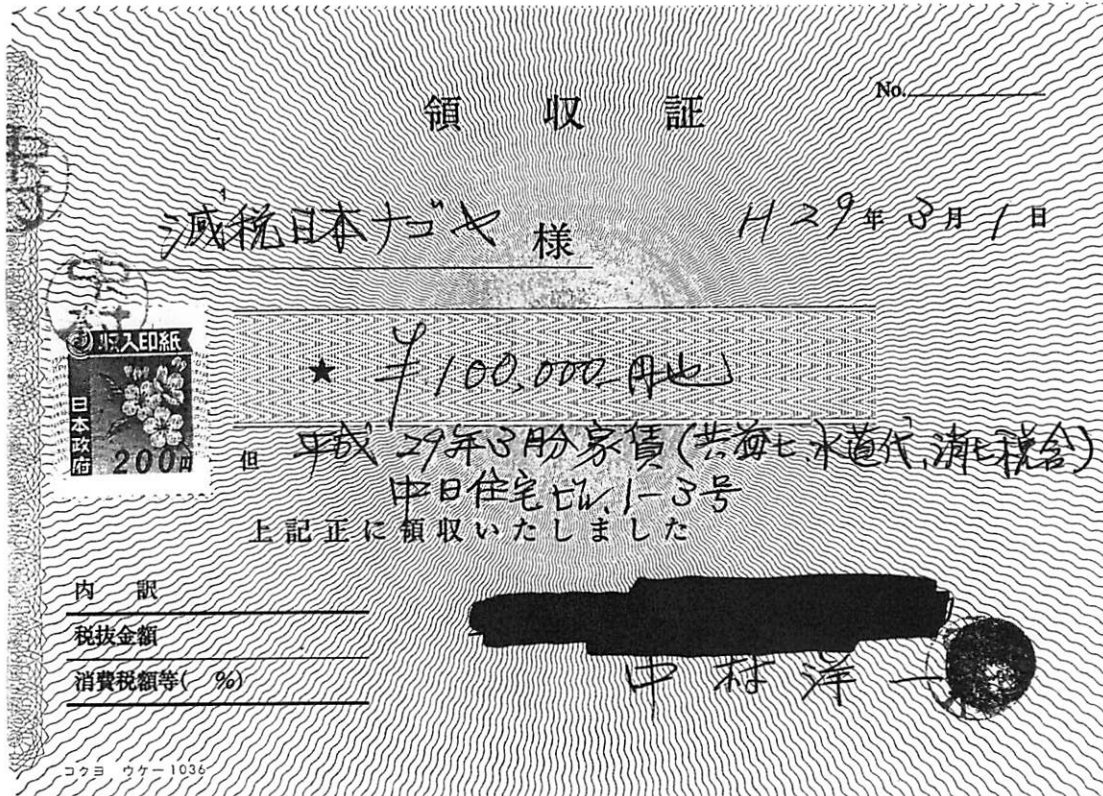 No.
領収証
減税日本ナゴヤ 様
H29年3月1日
収入印紙
日本政府
200円
★ ¥100,000-円也
但 平成29年3月分家賃(共益費、水道代、消費税含)
中日住宅ビル、1-3号
上記正に領収いたしました
内訳
税抜金額
消費税額等( %)
中村洋一
コクヨ ウケ-1036